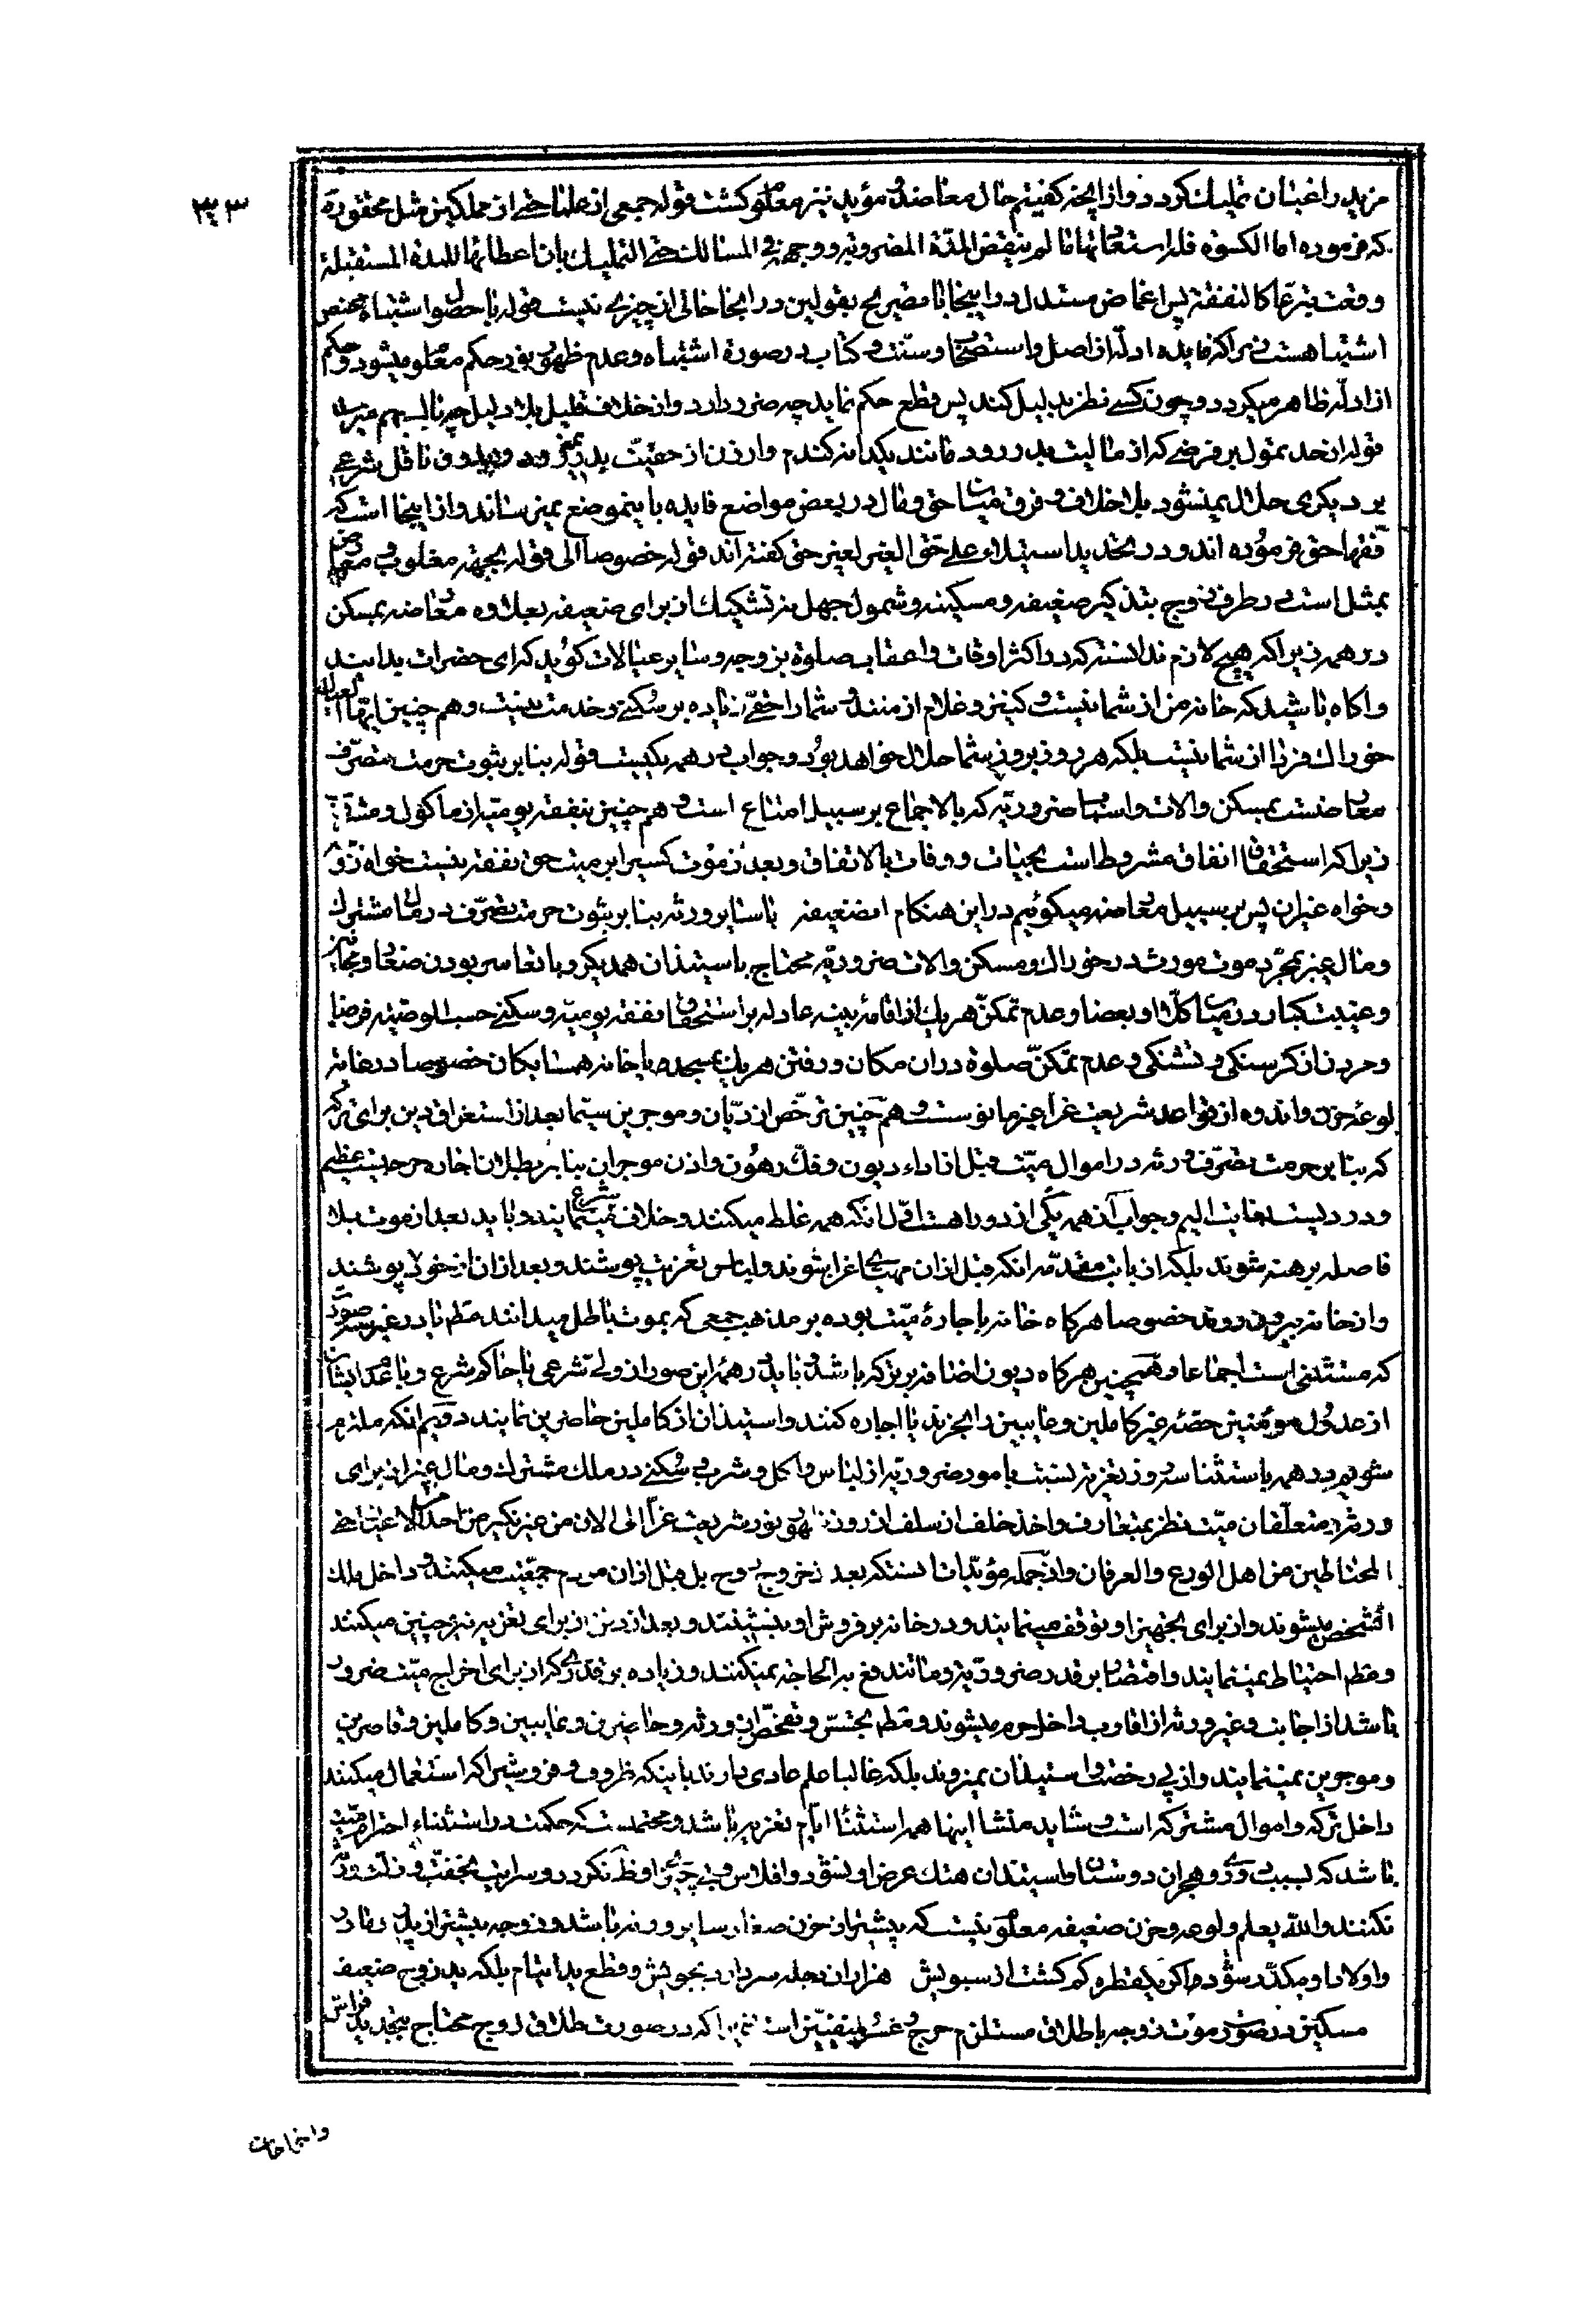 مزید راغبتان تملیک کردد و از آنچه کفتیم حال معاضد و مؤید نیز معلوم کشت قوله جمعی از علما حتی از جملکین مثل محقق ره
که فرموده اما الکسوة فله استعادتها ما لم ینقض المدة المضروبة و وجهه فی المسالک حتی التملیک بان اعطائها للمدة المستقبلة
وقعت تبرعا کالنفقة پس اغماض مستدل در اینجا با تصریح بقولین در انجا خالی از چیزی نیست قوله با حصول اشتباه محض
اشتباهست زیراکه فایده ادله از اصل و استصحاب و سنت و کتاب در صورة اشتباه و عدم ظهور بود حکم معلوم میشود و حکم
از ادله ظاهر میکردد و چون کسی نظر بدلیل کند پس قطع حکم نماید چه ضرر دارد و از خلاف قلیل بلا دلیل چه باک بهم میرساند
قوله از حد تمول بر فرضی که از مالیت بدر رود مانند یکدانه کندم و ارزن از حقیت بدر نمیرود و بدون ناقل شرعی
بر دیکری حلال نمیشود بلا خلاف و فرق میان حق و مال در بعض مواضع فایده باینموضع نمیرساند و از اینجا است که
فقها حق فرموده اند و در تحدید استیلاء علی حق الغیر لغیر حق کفته اند قوله خصوصا الی قوله بجهة مغلوب و معارض
بمثل است در طرف زوج بتذکیر ضعیف و مسکین و شمول جهل نیز تشکیک ان برای ضعیفه بعلاوه معارضه بمسکن
در همه زیراکه هیچ لازم ندانسته که در اکثر اوقات و اعقاب صلوة بزوجه و سایر عیالات کوید که ای حضرات بدانید
و اکاه باشید که خانه من از شما نیست و کنیز و غلام از منند و شما را حقی زیاده بر سکنی و خدمت نیست و هم چنین ایها العیال
خوراک فردا از شما نیست بلکه هر روز بروز بشما حلال خواهد بود و جواب در همه یکیست قوله بنابر ثبوت حرمت تصرف
معارضست بمسکن و الات و اسباب ضروریه که بالاجماع بر سبیل امتناع است و هم چنین بنفقه یومیه از ماکول و مشارب
زیراکه استحقاق انفاق مشروط است بحیات و وفات بالاتفاق و بعد از موت کسیرا بر میت حق نفقه نیست خواه زوجه
و خواه غیر ان پس بر سبیل معارضه میکوئیم در این هنکام ضعیفه با سایر ورثه بنابر ثبوت حرمت تصرف در مال مشترک
و مال غیر بمجرد موت مورث در خوراک و مسکن و الات ضروریه محتاج باستیذان همدیکر و با قاصر بودن صغار و مجانین
و غیبت کبار در میان کلا او بعضا و عدم تمکن هر یک از اقامه بینه عادله بر استحقاق نفقه یومیه و سکنی حسب الوصیه فرضا
و حرد زان کرسنکی و تشنکی و عدم تمکن صلوة در ان مکان و رفتن هر یک بمسجد یا خانه همسایکان خصوصا در خانه
لوعه حزن و اندوه از قواعد شریعت غرا غیر مانوست و هم چنین ترخص از دیان و موجرین سیما بعد از استغراق دین برای ترکه
که بنابر حرمت تصرف ورثه در اموال میت قبل از اداء دیون و فک رهون و اذن موجران بنابر بطلان اجاره حرجیست عظیم
و دردیست بغایت الیم و جواب از همه یکی از دو راهست اول انکه همه غلط میکنند و خلاف شرع مینمایند و باید بعد از موت بلا
فاصله برهنه شوند بلکه از باب مقدمه انکه قبل از ان مهیای عزا شوند و لباس تعزیت پوشند و بعد از ان از خود پوشند
و از خانه بیرون روند خصوصا هرکاه خانه باجارهٔ میت بوده بر مذهب جمعی که بموت باطل میدانند مطم یا در غیر صورت
که مستثنی است اجماعا و همچنین هرکاه دیون اضافه بر ترکه باشد و باید در همهٔ این صور از ولی شرعی یا حاکم شرع و با عدم ایشان
از عدول مومنین حصهٔ غیر کاملین و غایبین را بخرند یا اجاره کنند و استیذان از کاملین حاضرین نمایند دویم انکه ملتزم
شویم در همه باستثنا سه روز تعزیه نسبت بامور ضروریه از لباس و اکل و شرب و سکنی در ملک مشترک و مال غیر از برای
ورثه و متعلقان میت نظر بمتعارف و اخذ خلف از سلف از روز ظهور نور شریعت غرا الی الان من غیر نکیر من احد الاعیان حتی
المحتاطین من اهل الورع و العرفان و ازجمله مؤیدات انستکه بعد از خروج روح بل قبل از ان مردم جمعیت میکنند و داخل ملک
انشخص میشوند و از برای تجهیز او توقف مینمایند و در خانه بر فروش او مینشینند و بعد از دفن از برای تعزیه نیز چنین میکنند
و مطم احتیاط نمینمایند و اقتصار بر قدر ضروریه و مانند دفع به الحاجة نمیکنند و زیاده بر قدری که از برای اخراج میت ضرور
باشد از اجانب و غیر ورثه از اقارب داخل حرم میشوند و مطم تجسس و تفحص از ورثه و حاضرین و غایبین و کاملین و قاصرین
و موجرین نمینمایند و از پی رخصت و استیذان نمیروند بلکه غالبا علم عادی دارند باینکه ظروف و فروشیرا که استعمال میکنند
داخل ترکه و اموال مشترکه است و شاید منشا اینها همه استثنا ایام تعزیه باشد و محتملست که حکمت در استثناء احترام میت
باشد که بسبب و هجران دوستان و استیذان هتک عرض او نشود و افلاس و بی چیزی او ظاهر نکردد و سرایت بخفت و ذلت ورثه
نکنند والله یعلم و لوعه و حزن ضعیفه معلوم نیست که بیشتر از حزن صغار و سایر ورثه باشد و زوجه بیشتر از پدر و مادر
و اولاد او مکدر شود ماکر یکقطره کم کشت از سبویش هزاران دجله سر دارد بجویش و قطع بد ایتام بلکه ید زوج ضعیف
مسکین در صورت موت زوجه یا طلاق مستلزم حرج و عسر یقینی است زیراکه در صورت طلاق زوج محتاج بتجدید فراش
واتحاخات